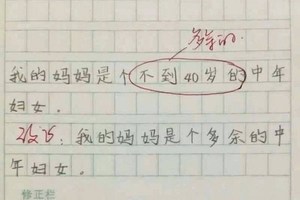 多余的.
我的妈妈是个不到40岁的中年
妇女。
改为:我的妈妈是个多余的中
年妇女。
修正栏